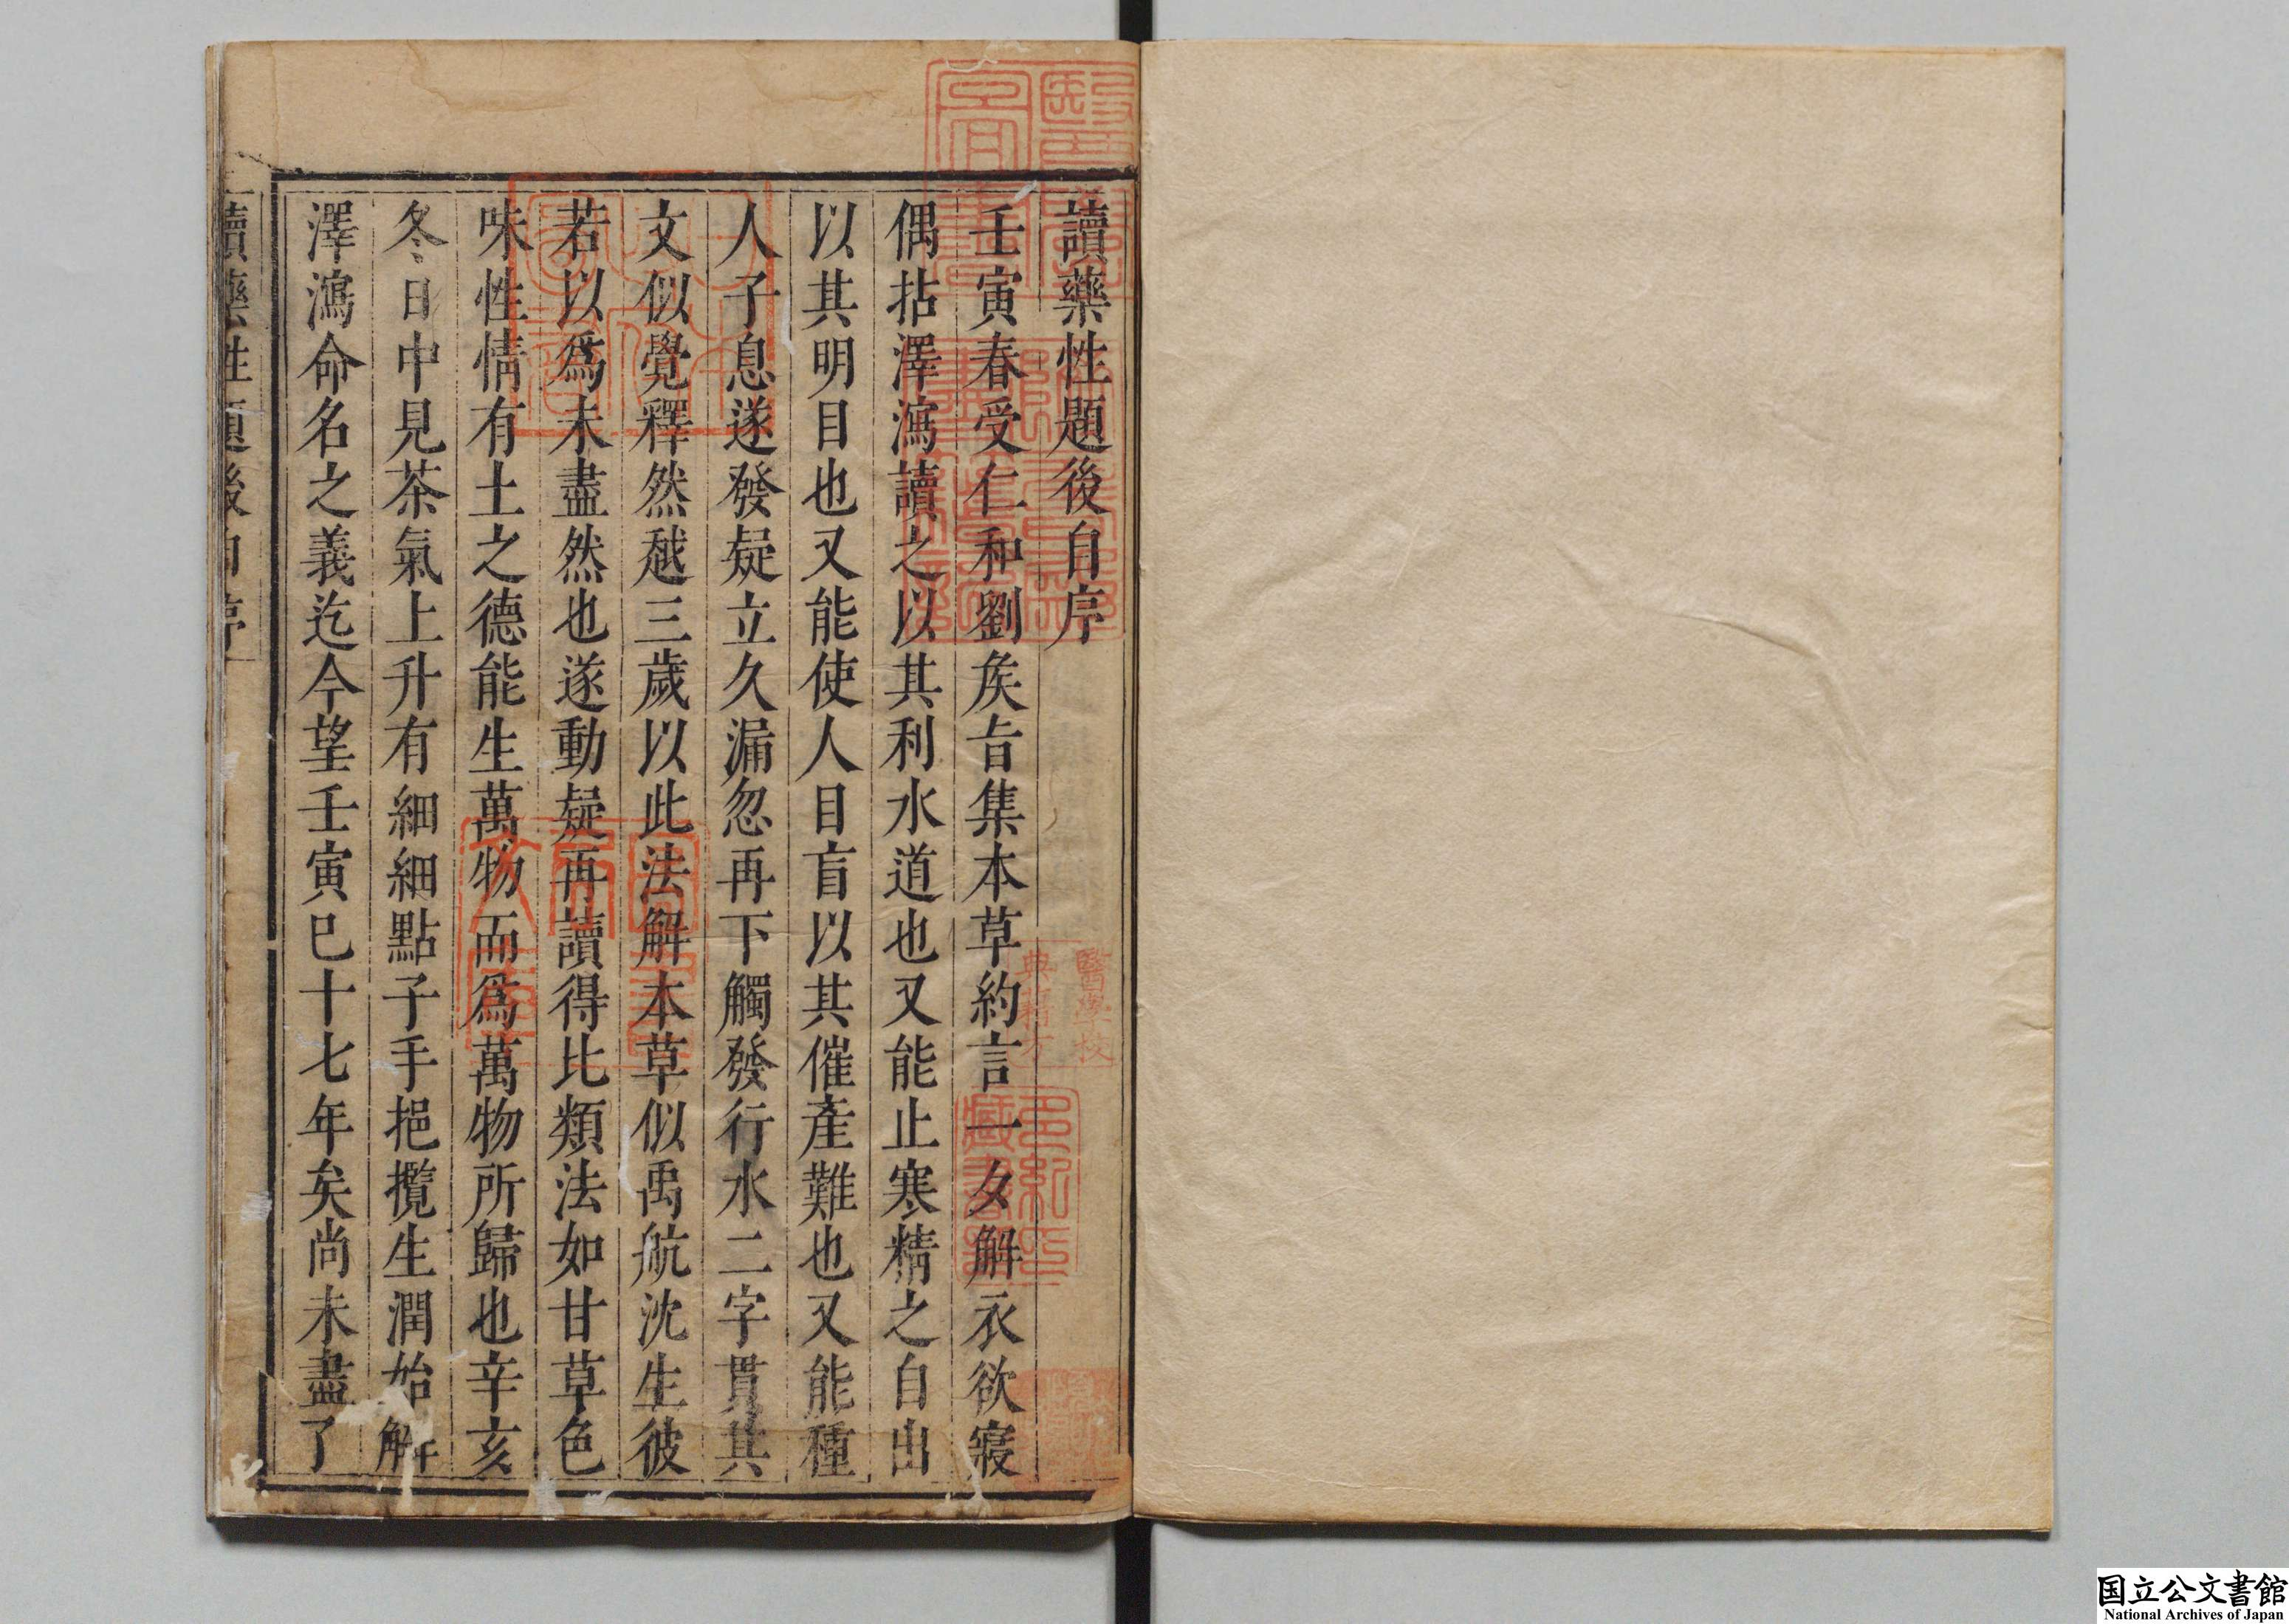 讀藥性題後自序
壬寅春受仁和劉矦㫖集本草約言一夕解衣欲寢
偶拈澤瀉讀之以其利水道也又能止寒精之自出
以其明目也又能使人目盲以其催產難也又能種
人子息遂發疑立久漏忽再下觸發行水二字貫其
文似覺釋然越三歲以此法解本草似禹航沈生彼
若以爲未盡然也遂動疑再讀得比類法如甘草色
味性情有土之德能生萬物而爲萬物所歸也辛亥
冬日中見茶氣上升有細細點子手挹攬生潤始解
澤瀉命名之義迄今望壬寅已十七年矣尚未盡了
讀藥性題後自序
醫學校
典籍方
国立公文書館
National Archives of Japan